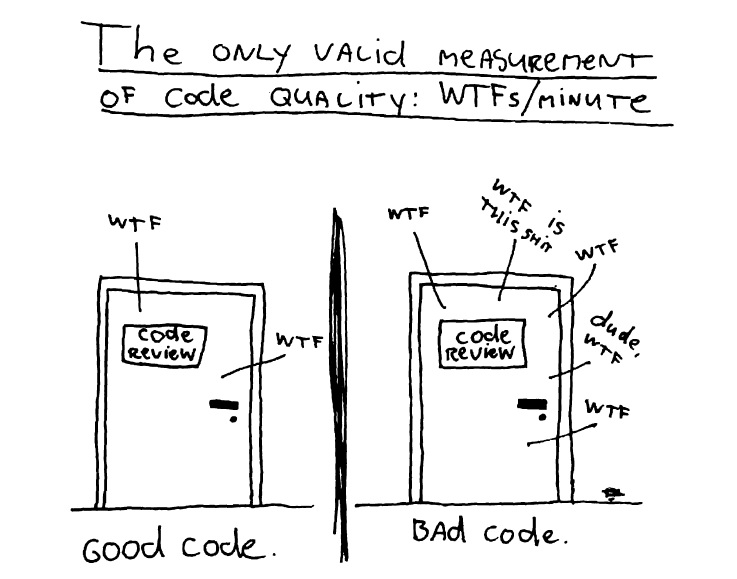 The ONLY VALiD MEASUREMENT
OF Code QUALITY: WTFs/MINUTE
WTF
Code
REViEW
WTF
GOOD Code.
WTF
WTF is
THiS SHiT
WTF
Code
REViEW
dude,
WTF
WTF
BAd Code.